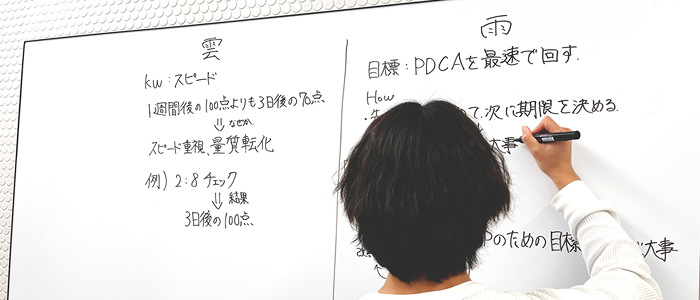 雲
kw:スピード
1週間後の100点よりも3日後の70点
⇓なぜか
スピード重視、量質転化
例) 2:8チェック
⇓結果
3日後の100点
雨
目標:PDCAを最速で回す.
How
て、次に期限を決める.
大事
のための目標
大事